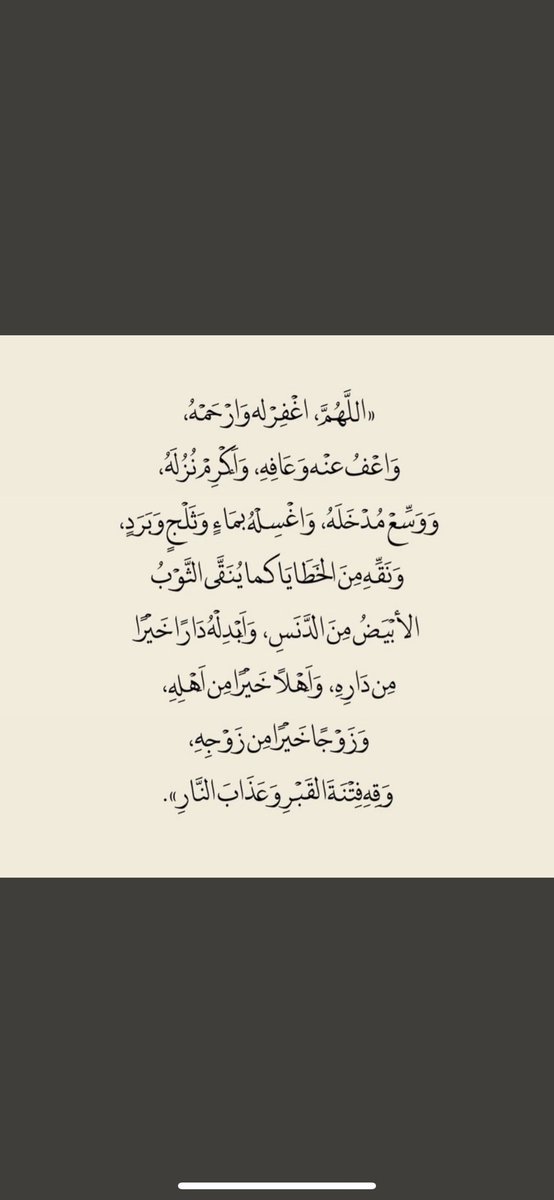 «اللَّهُمَّ، اغْفِرْ له وَارْحَمْهُ،
وَاعْفُ عنْه وَعَافِهِ، وَأَكْرِمْ نُزُلَهُ،
وَوَسِّعْ مُدْخَلَهُ، وَاغْسِلْهُ بمَاءٍ وَثَلْجٍ وَبَرَدٍ،
وَنَقِّهِ مِنَ الخَطَايَا كما يُنَقَّى الثَّوْبُ
الأبْيَضُ مِنَ الدَّنَسِ، وَأَبْدِلْهُ دَارًا خَيْرًا
مِن دَارِهِ، وَأَهْلًا خَيْرًا مِن أَهْلِهِ،
وَزَوْجًا خَيْرًا مِن زَوْجِهِ،
وَقِهِ فِتْنَةَ القَبْرِ وَعَذَابَ النَّارِ».